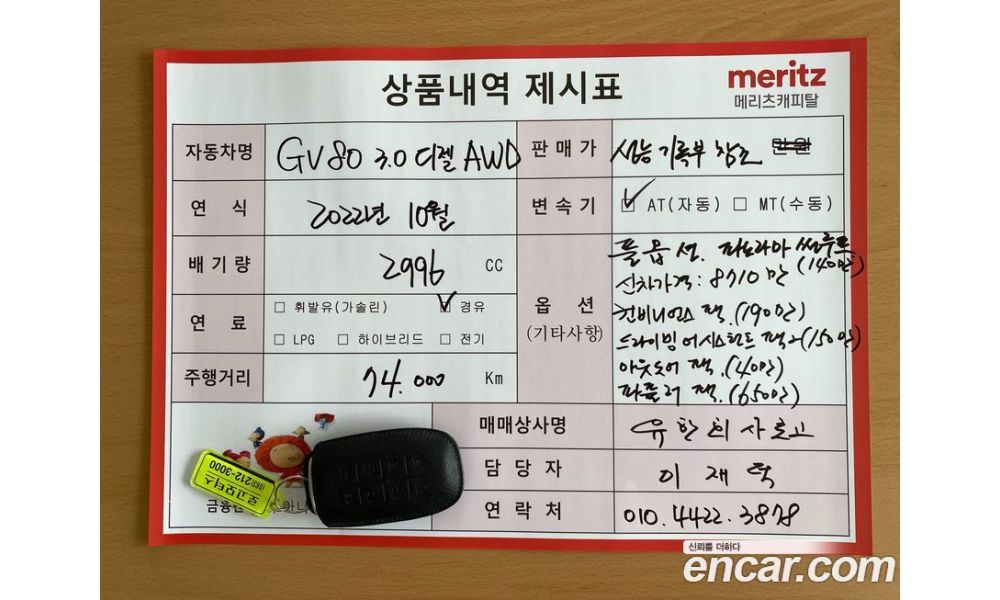 상품내역 제시표
meritz
메리츠캐피탈
자동차명 GV80 3.0 디젤 AWD
판매가 성능기록부 참조 만원
연 식 2022년 10월
변속기 ☑ AT(자동) ☐ MT(수동)
배기량 2996 CC
연 료 ☐ 휘발유(가솔린) ☑ 경유
☐ LPG ☐ 하이브리드 ☐ 전기
주행거리 74.000 Km
옵 션
(기타사항)
풀옵션. 파노라마 썬루프
(140만)
신차가격: 8710만
컨비니언스 팩.(190만)
드라이빙 어시스턴트 팩2(150만)
아웃도어 팩.(40만)
파퓰러 팩.(650만)
매매상사명 유한회사로고
담당자 이재덕
연락처 010.4422.3878
로고모터스
(063)212-3000
신뢰를 더하다
encar.com